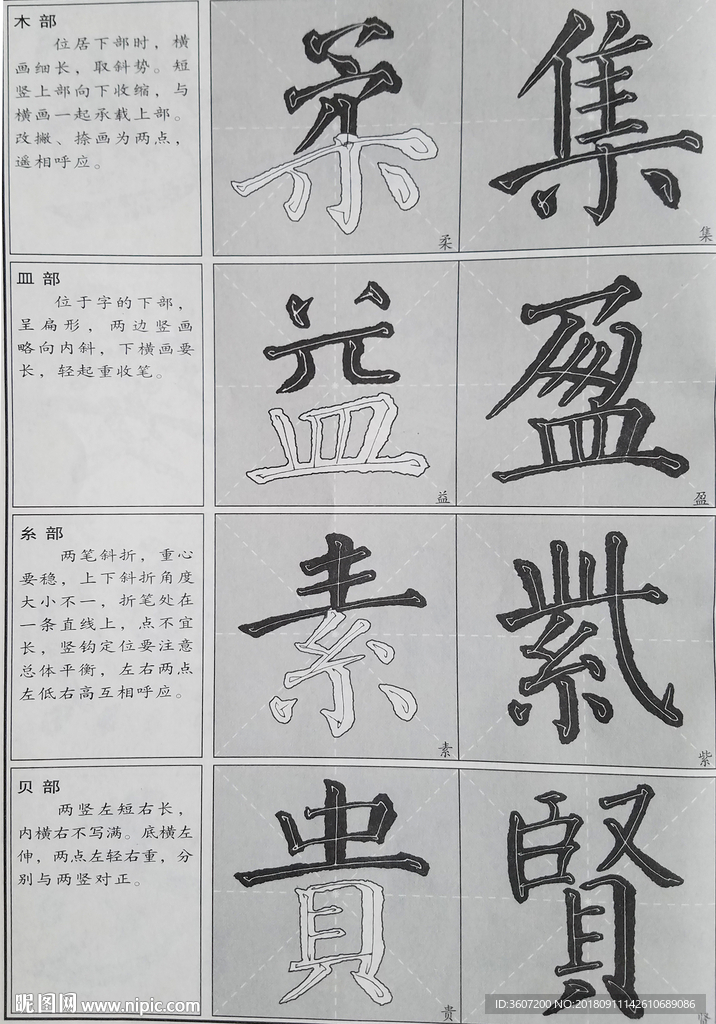 木部
位居下部时，横
画细长，取斜势。短
竖上部向下收缩，与
横画一起承载上部。
改撇、捺画为两点，
遥相呼应。
柔
集
柔
集
皿部
位于字的下部，
呈扁形，两边竖画
略向内斜，下横画要
长，轻起重收笔。
益
盈
益
盈
糸部
两笔斜折，重心
要稳，上下斜折角度
大小不一，折笔处在
一条直线上，点不宜
长，竖钩定位要注意
总体平衡，左右两点
左低右高互相呼应。
素
紫
素
紫
贝部
两竖左短右长，
内横右不写满。底横左
伸，两点左轻右重，分
别与两竖对正。
貴
賢
贵
昵图网 www.nipic.com
ID:3607200 NO:20180911142610689086